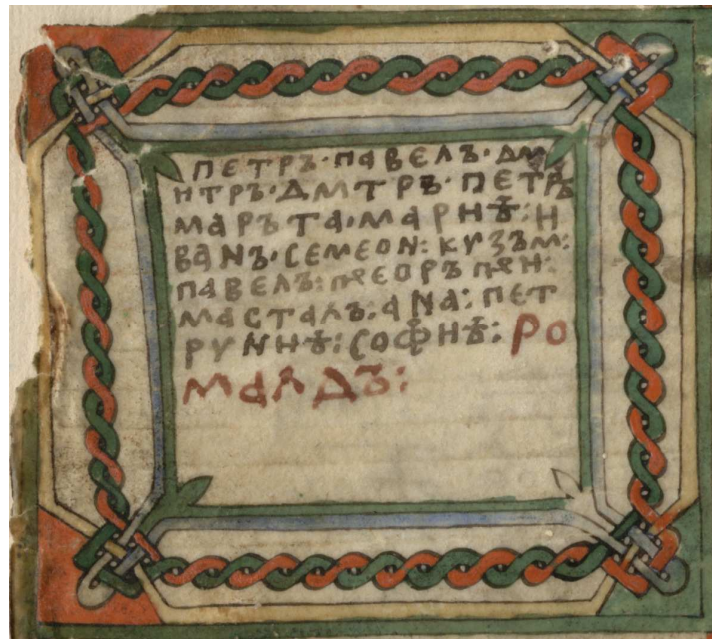 ПЕТРЪ·ПАВЕЛЪ·ДМ
НТРЪ·ДМТРЪ·ПЕТРЪ
МАРЪТА·МАРНѢ:Н
ВАНЪ·СЕМЕОН:КУЗЪМ:
ПАВЕЛЪ:
МАСТАЛЪ:АНА:ПЕТ
РУННѢ:СОФНѢ:РО
МАЛДЪ: